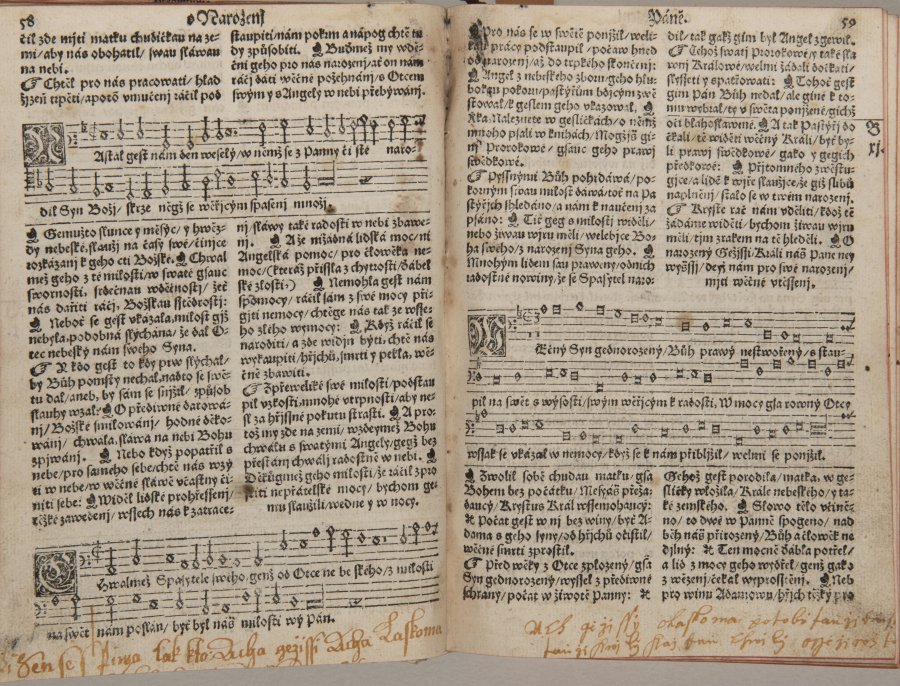 58
o Narozenj
čil zde mjti matku chudičkau na ze-
mi/ aby nás obohatil/ swau sláwau
na nebi.
Chtěl pro nás pracowati/ hlad
žjzeň trpěti/ a potom vmučený ráčil pod
staupiti/ nám pokrm a nápog chtě tu
dy způsobiti. Budmež my wdě-
čni geho pro nás narozenj/ ať on nám
ráčj dáti wěčné požehnánj/ s Otcem
swým y s Angely w nebi přebýwánj.
NAstal gest nám den weselý/ w němž se z Panny čisté naro-
dil Syn Božj/ skrze něgž se wěřjcým spasenj množj.
Gemužto slunce y měsýc/ y hwěz-
dy nebeské/ slaužj na časy swé/ činjce
rozkázanj k geho cti Božské. Chwal
mež geho z té milosti/ w swaté gsauc
swornosti, srdečnau wděčnostj/ žeť
nás dařiti ráčj, Božskau sstědrostj:
Neboť se gest vkázala/ milost gjž
nebyla/ podobná slýchána/ že dal O-
tec nebeský nám swého Syna.
A kdo gest to kdy prw slýchal/
by Bůh pomsty nechal/ nadto se swě-
tu dal/ aneb, by sám se snjžil/ způsob
slauhy wzal: O předivné darowá-
nj/ Božské smilowánj/ hodné děko-
wánj/ chwála, sláwa na nebi Bohu
zpjwánj. Nebo když popatřil s
nebe/ pro samého sebe/ chtě nás wzý
ti w nebe/ w wěčné sláwě včastny či-
niti sebe: Widěl lidské prohřessenj/
těžké zawedenj/ wssech nás k zatrace-
nj/ sláwy také radosti w nebi zbawe-
nj. A že nižádná lidská moc/ ni
Angelská pomoc/ pro člowěka ne-
moc/ (kteráž přissla z chytrosti/ ďábel
ské zlosti,) Nemohla gest nám
spomocy/ ráčil sám z swé mocy při-
gjti nemocy/ chtěge nás tak ze wsse-
ho zlého wymocy: Když ráčil se
naroditi/ a zde widjn býti, chtě nás
wykaupiti/ hřjchů/ smrti y pekla, wě-
čně zbawiti.
Zpřeweliké swé milosti/ podstau
pil vzkosti, mnohé vtrpnosti/ aby ne-
sl za hřjssné pokutu strasti. A pro-
tož my zde na zemi/ wzdeymež Bohu
chwálu s swatými Angely/ gegž bez
přestánj chwálj radostně w nebi.
Děkugmež geho milosti/ že ráčil z pro
stiti nepřátelské mocy/ bychom ge-
mu slaužili/ we dne y w nocy.
CHwalmež Spasytele swého, genž od Otce ne be ského/ z milosti
na swět nám poslán/ byl král milosti wý Pán.
59
Páně.
Pro nás se w swětě ponjžil/ weli-
kau práci podstaupil/ počaw hned
od narozenj/ až do trpkého skončenj:
Angel z nebeského zboru/ geho hlu-
bokau pokoru/ pastýřům bogjcým zwě
stowal/ k geslem geho vkazowal.
Řka: Naleznete w gesličkách/ o němž
mnoho psali w knihách/ Mogžjš gi-
nj Prorokowé/ gsauc geho prawj
swědkowé.
Pyssnými Bůh pohrdáwá/ po-
korným swau milost dáwá/ toť na Pa
stýřjch shledáno/ a nám k naučenj za
psáno: Tiť geg s milostj widěli/
nebo žiwau wjru měli/ welebjce Bo-
ha swého/ z narozenj Syna geho.
Mnohým lidem sau praweny/ od nich
radostné nowiny/ že se Spasytel naro-
dil/ tak gakž gim byl Angel zgewil.
Tehož swatj Prorokowé/ y také sla
wnj Králowé/ welmi žádali dočkati/
slysseti y spatřowati: Tohoť gest
gim Pán Bůh nedal/ ale giné k to-
mu wybral/ ty w swěta ponjžené/ gichž
oči blahoslawené. A tak Pastýřj do
čkali/ tě widěti wěčný Králi/ byť by-
li prawj swědkowé/ gako y gegich
předkowé: Přjtomného zwěstu-
gjce/ a lidé k wjře slaužjce/ že giž slibů
naplněnj/ stalo se w twém narozenj.
Kryste rač nám vděliti/ kdož tě
žádáme widěti/ bychom žiwau wjru
měli/ tjm zrakem na tě hleděli. O
narozený Gežjssi/ Králi náš Pane ney
wyžssj/ deyž nám pro swé narozenj/
mjti wěčné vtěssenj.
B
xj.
WEčný Syn gednorozený/ Bůh prawý nestwořený/ s stau-
pil na swět s wýsosti/ swým wěřjcým k radosti, W mocy gsa rowný Otcy
wssak se vkázal w nemocy/ když se k nám přibljžil/ welmi se ponjžil.
Zwolil sobě chudau matku/ gsa
Bohem bez počátku/ Mesyáš přežá-
daucý/ Krystus Král wssemohaucý:
Počat gest w nj bez winy/ byť A-
dama s geho syny/ od hřjchů očistil/
wěčné smrti zprostil.
Před wěky z Otce zplozený/ gsa
Syn gednorozený/ wyssel z předivné
schrány/ počat w žiwotě Panny:
Gehož gest porodila/ matka, w ge-
sličky wložila/ Krále nebeského/ y ta-
ké zemského. Slowo tělo včině-
no/ to dwé w Panně spogeno/ nad
běh nás přirozený/ Bůh a člowěk ne-
djlný: Ten mocně ďábla potřel/
a lid z mocy geho wydřel/ genž gako
z wězenj, čekal wyprosstěnj. Neb
pro winu Adamowu/ hřjch těžký pro